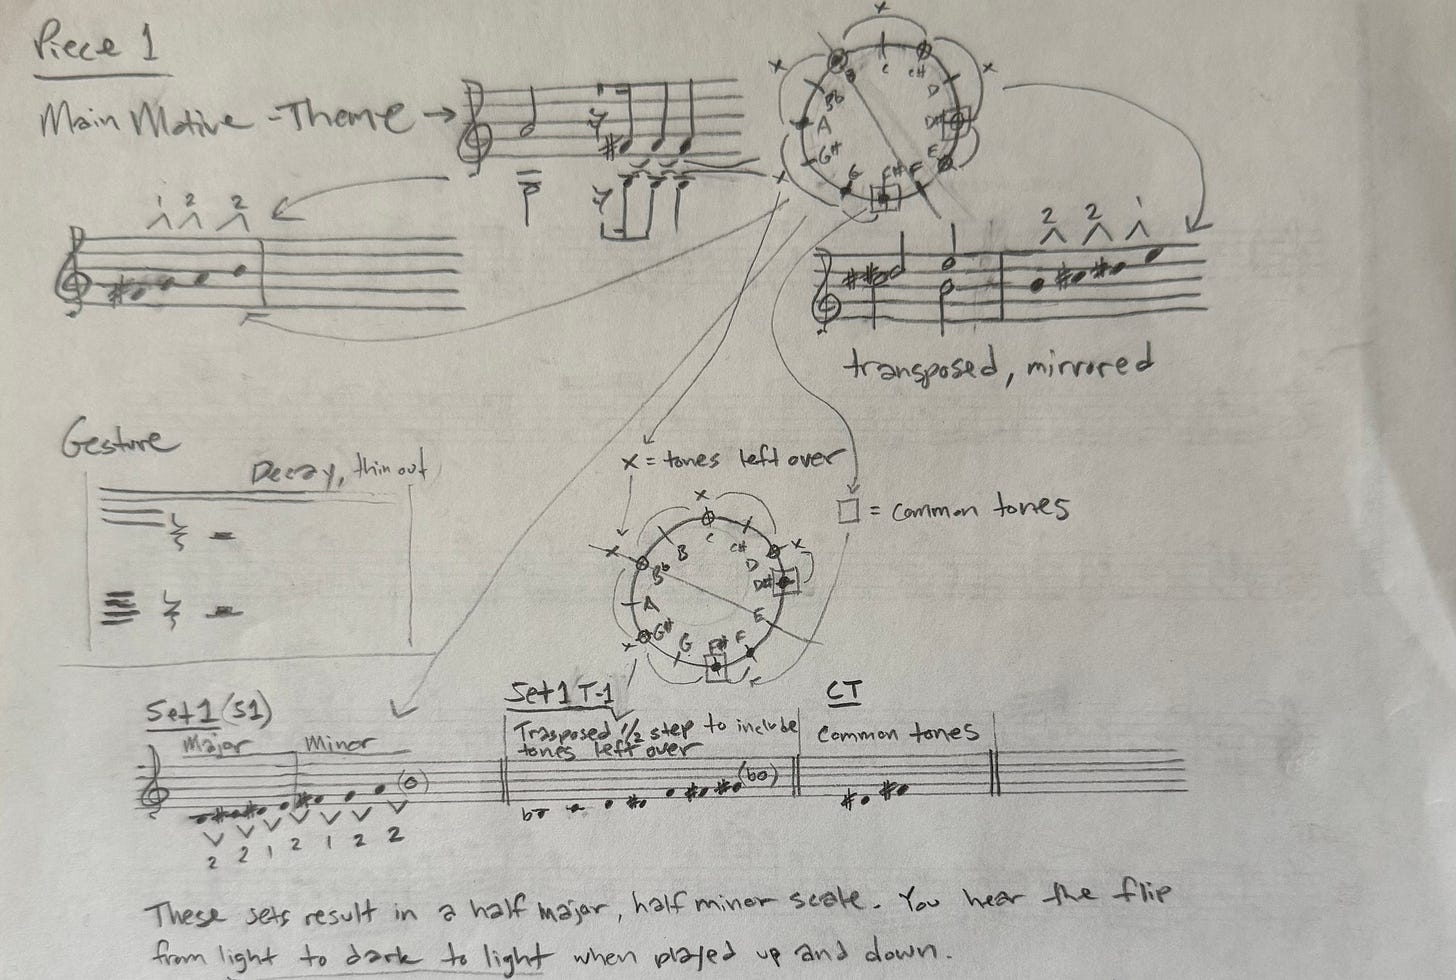 Piece 1
Main Motive - Theme →
B C C# D D# E F F# G G# A Bb
x x x x
1 2 2
2 2 1
transposed, mirrored
Gesture
Decay, thin out
x = tones left over
□ = common tones
x x x x
Bb B C C# D D# E F F# G G# A
Set 1 (S1)
Major Minor
2 2 1 2 1 2 2
Set 1 T-1
Trasposed 1/2 step to include
tones left over
(bo)
CT
Common tones
These sets result in a half major, half minor scale. You hear the flip
from light to dark to light when played up and down.